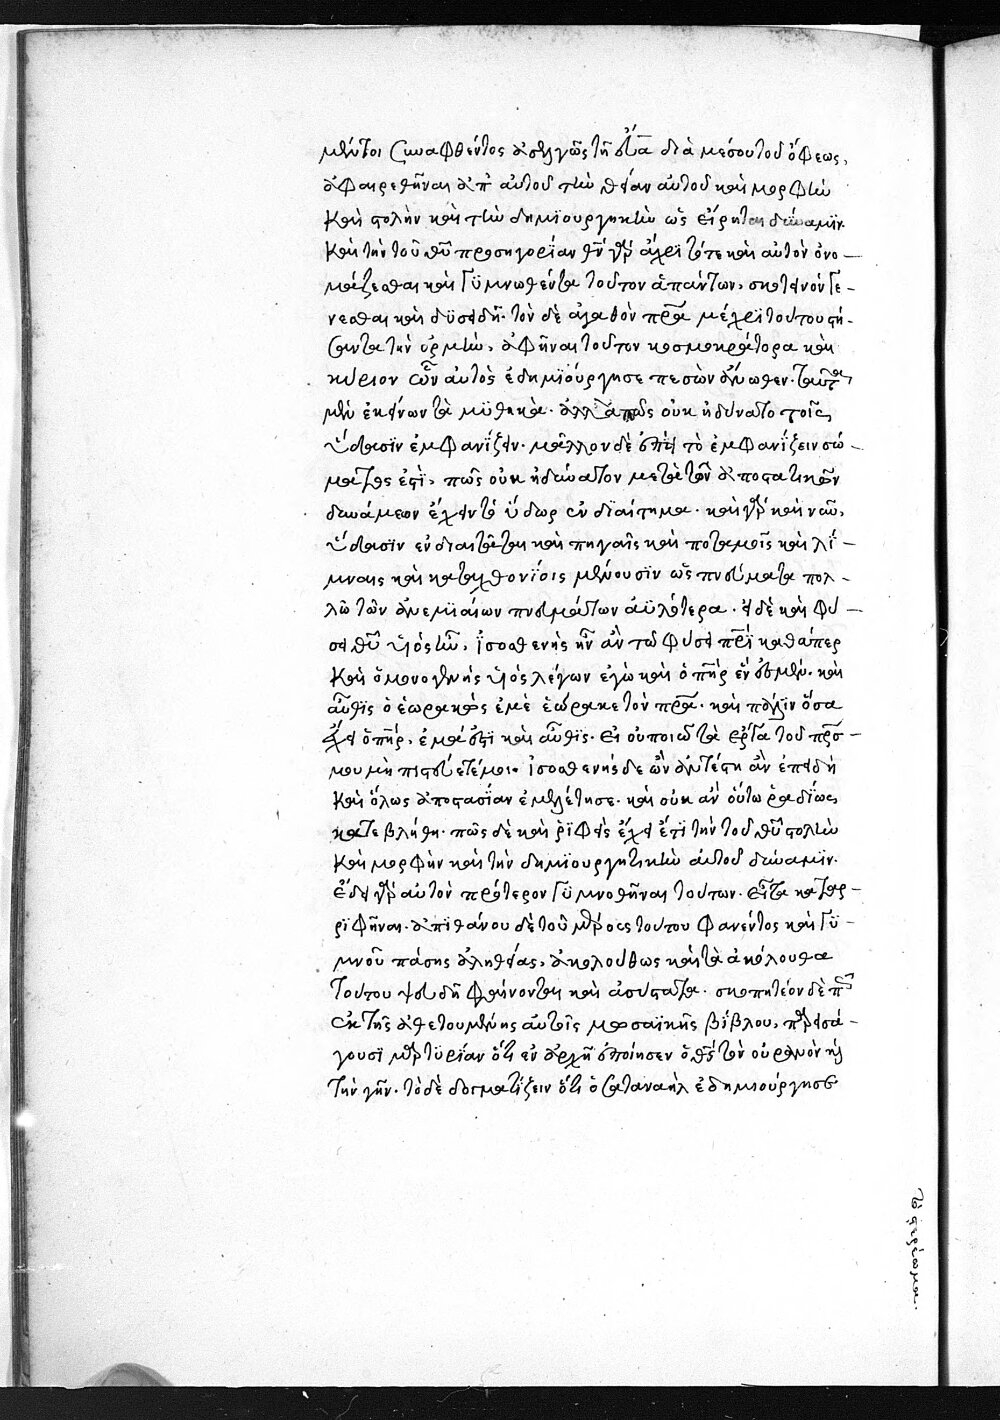 μέντοι συναφθέντος ἀσελγῶς τῇ εὔα διὰ μέσου τοῦ ὄφεως,
ἀφαιρεθῆναι ἀπ' αὐτοῦ τὴν θείαν αὐτοῦ καὶ μορφὴν
καὶ στολὴν καὶ τὴν δημιουργικὴν ὡς εἴρηται δύναμϊν.
καὶ τὴν τοῦ θῦ προσηγορίαν θν γὰρ ἄχρϊ τότε καὶ αὐτὸν ὀνο-
μάζεσθαι καὶ γϋμνωθέντα τούτον ἁπάντων, σκοτεινὸν γε-
νεσθαι καὶ δϋσειδῆ. τὸν δὲ ἀγαθὸν πρα μέχρϊ τούτου στή-
σαντα τὴν ὁρμὴν, ἀφῆναι τοῦτον κοσμοκράτορα καὶ
κύριον ὧν αὐτὸς ἐδημϊούργησε πεσὼν ἄνωθεν. ταῦτα
μὲν ἐκείνων τὰ μϋθικὰ. ἀλλὰ πῶς οὐκ ἠδύνατο τοῖς
ὕδασϊν ἐμφανίζειν. μᾶλλον δὲ ἐπεὶ τὸ ἐμφανίζειν σώ-
ματος ἐστὶ, πῶς οὐκ ἠδύνατον μετὰ τῶν ἀποστατικῶν
δυνάμεων ἔχειν τὸ ὕδωρ ἐνδιαίτημα. καὶ γὰρ καὶ νῦν,
ὕδασϊν ἐνδιαιτᾶται καὶ πηγαῖς καὶ ποταμοῖς καὶ λί-
μναις καὶ καταχθονίοις μένουσϊν ὡς πνεύματα πολ-
λῶ τῶν ἀνεμϊαίων πνευμάτων ἀϋλότερα. εἰ δὲ καὶ φύ-
σει θῦ υἱὸς ἦν, ἰσοσθενὴς ἦν ἂν τῶ φύσει πρϊ καθάπερ
καὶ ὁ μονογενὴς υἱὸς λέγων ἐγὼ καὶ ὁ πηρ ἕν ἐσμεν. καὶ
αὖθϊς ὁ ἑωρακὼς ἐμὲ ἑώρακε τὸν πρα. καὶ πάλϊν ὅσα
ἔχει ὁ πηρ, ἐμά ἐστϊ καὶ αὖθϊς. εἰ οὐ ποιῶ τὰ ἔργα τοῦ πρσ
μου μὴ πιστεύετέ μοι. ἰσοσθενὴς δε ὢν ἀντέστη ἂν ἐπειδὴ
καὶ ὅλως ἀποστασίαν ἐμελέτησε. καὶ οὐκ ἂν οὕτω ῥαδίως
κατεβλήθη. πῶς δὲ καὶ ῥϊφεὶς ἔχει ἔτϊ τὴν τοῦ θῦ στολὴν
καὶ μορφὴν καὶ τὴν δημϊουργητικὴν αὐτοῦ δύναμϊν.
ἔδει γὰρ αὐτὸν πρότερον γϋμνοθῆναι τούτων. εἶτα κατα-
ρϊφῆναι. ἀπϊθάνου δὲ τοῦ μέρους τούτου φανέντος καὶ γϋ-
μνοῦ πάσης ἀληθείας, ἀκολούθως καὶ τὰ ἀκόλουθα
τούτου ψευδῆ φαίνονται καὶ ἀσύστατα. σκοπητέον δὲ πῶς
ἐκ τῆς ἀθετουμένης αὐτοῖς μοσαϊκῆς βίβλου, παρεισά-
γουσϊ μαρτϋρίαν ὅτι ἐν ἀρχῆ ἐποίησεν ὁ θσ τὸν οὐρανὸν καὶ
τὴν γῆν. τὸ δὲ δογματίζειν ὅτι ὁ σαταναὴλ ἐδημιούργησε
τὸ στερέωμα.